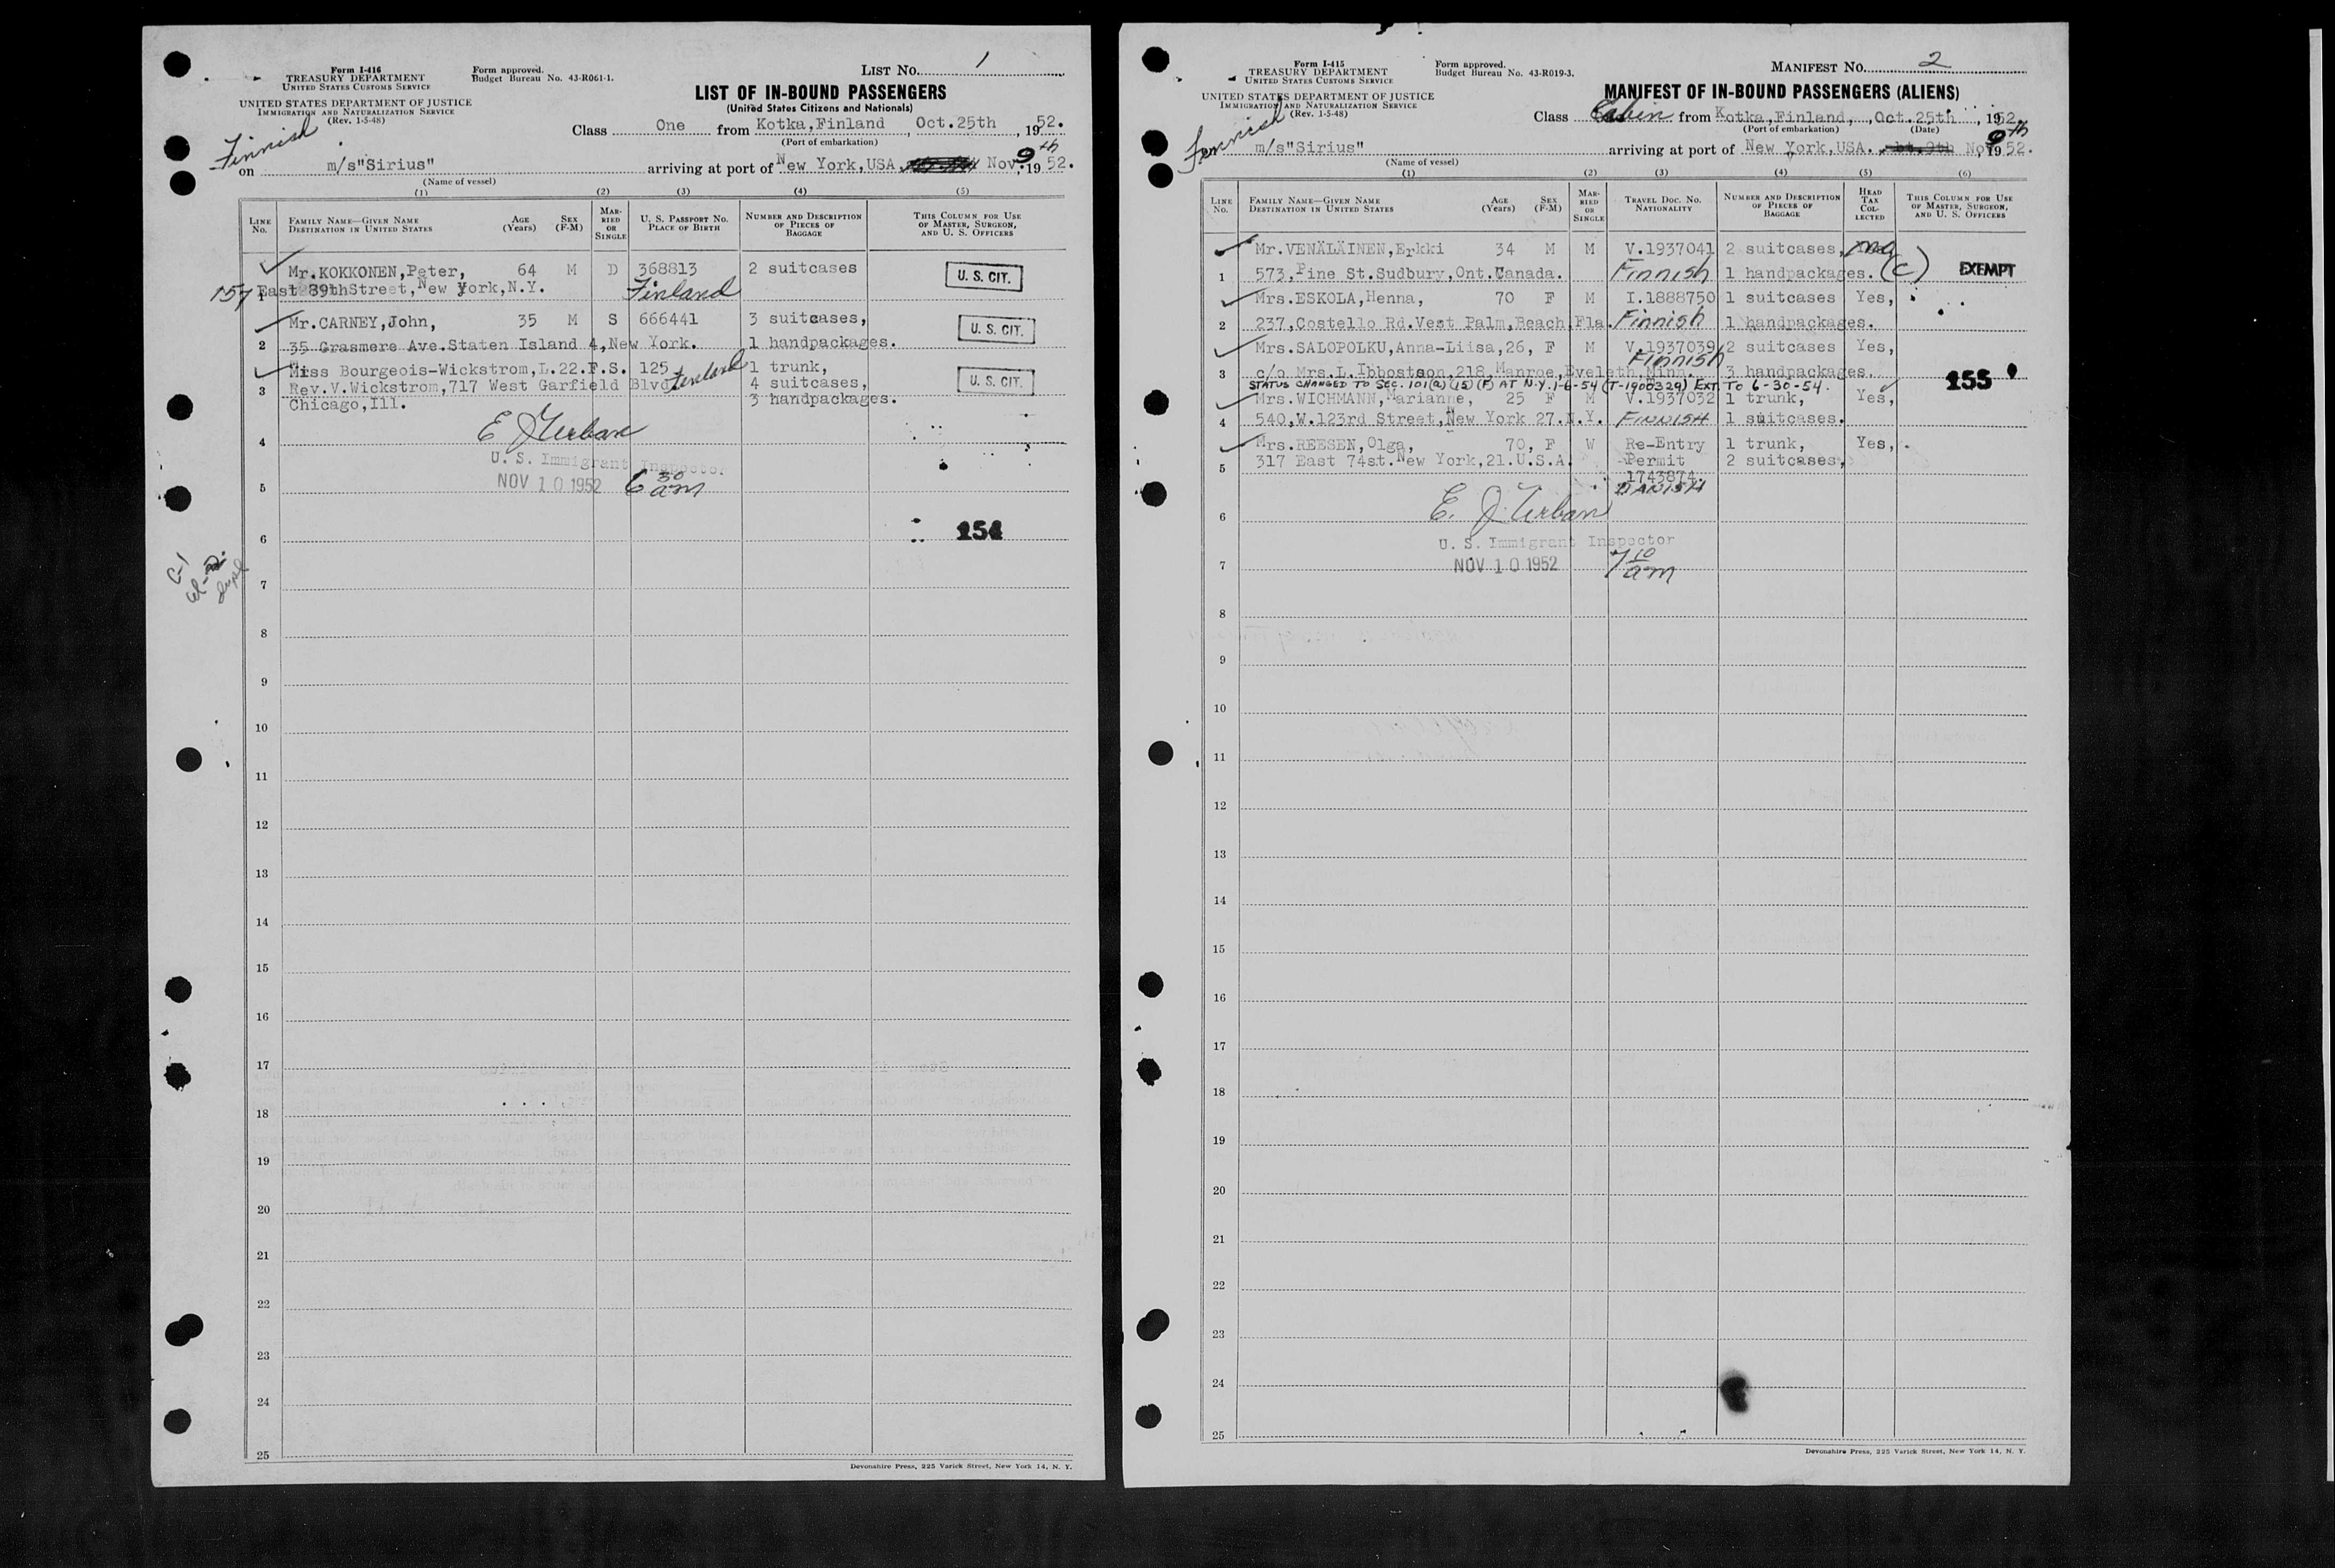 Form I-416
TREASURY DEPARTMENT
UNITED STATES CUSTOMS SERVICE
Form approved.
Budget Bureau No. 43-R061-1.
LIST NO. 1
UNITED STATES DEPARTMENT OF JUSTICE
IMMIGRATION AND NATURALIZATION SERVICE
(Rev. 1-5-48)
LIST OF IN-BOUND PASSENGERS
(United States Citizens and Nationals)
Class One from Kotka,Finland, Oct.25th, 1952.
(Port of embarkation)
Finnish
on m/s"Sirius" arriving at port of New York,USA Nov. 9th 1952.
(Name of vessel)
(1) (2) (3) (4) (5)
LINE NO. FAMILY NAME—GIVEN NAME DESTINATION IN UNITED STATES AGE (Years) SEX (F-M) MARRIED OR SINGLE U. S. PASSPORT NO. PLACE OF BIRTH NUMBER AND DESCRIPTION OF PIECES OF BAGGAGE THIS COLUMN FOR USE OF MASTER, SURGEON, AND U. S. OFFICERS
Mr.KOKKONEN,Peter, 64 M D 368813 2 suitcases U. S. CIT.
1 157 East 89thStreet,New York,N.Y. Finland
Mr.CARNEY,John, 35 M S 666441 3 suitcases, U. S. CIT.
2 35 Grasmere Ave.Staten Island 4,New York. 1 handpackages.
Miss Bourgeois-Wickstrom,L.22.F.S. 125 Finland 1 trunk,
3 Rev.V.Wickstrom,717 West Garfield Blvd 4 suitcases, U. S. CIT.
Chicago,Ill. 3 handpackages.
4 E J Urban
U. S. Immigrant Inspector
5 NOV 10 1952 6 30 am
6 154
C-1
7
8
9
10
11
12
13
14
15
16
17
18
19
20
21
22
23
24
25
Devonshire Press, 225 Varick Street, New York 14, N. Y.
Form I-415
TREASURY DEPARTMENT
UNITED STATES CUSTOMS SERVICE
Form approved.
Budget Bureau No. 43-R019-3.
MANIFEST NO. 2
UNITED STATES DEPARTMENT OF JUSTICE
IMMIGRATION AND NATURALIZATION SERVICE
(Rev. 1-5-48)
MANIFEST OF IN-BOUND PASSENGERS (ALIENS)
Class Cabin from Kotka,Finland, ,Oct.25th , 1952.
(Port of embarkation) (Date)
Finnish
m/s"Sirius" arriving at port of New York,USA. Nov 9th 1952.
(Name of vessel)
(1) (2) (3) (4) (5) (6)
LINE NO. FAMILY NAME—GIVEN NAME DESTINATION IN UNITED STATES AGE (Years) SEX (F-M) MARRIED OR SINGLE TRAVEL DOC. NO. NATIONALITY NUMBER AND DESCRIPTION OF PIECES OF BAGGAGE HEAD TAX COLLECTED THIS COLUMN FOR USE OF MASTER, SURGEON, AND U. S. OFFICERS
Mr.VENÄLÄINEN,Erkki 34 M M V.1937041 2 suitcases,
1 573,Pine St.Sudbury,Ont.Canada. Finnish 1 handpackages. (C) EXEMPT
Mrs.ESKOLA,Henna, 70 F M I.1888750 1 suitcases Yes,
2 237,Costello Rd.Vest Palm,Beach,Fla. Finnish 1 handpackages.
Mrs.SALOPOLKU,Anna-Liisa,26, F M V.1937039 2 suitcases Yes,
3 c/o Mrs.L.Ibbostson,218,Manroe,Eveleth,Minn. Finnish 3 handpackages.
STATUS CHANGED TO SEC. 101(a)(15)(F) AT N.Y. 1-6-54 (T-1900329) EXT. TO 6-30-54. 155
Mrs.WICHMANN,Marianne, 25 F M V.1937032 1 trunk, Yes,
4 540,W.123rd Street,New York 27.N.Y. FINNISH 1 suitcases.
Mrs.REESEN,Olga, 70, F W Re-Entry 1 trunk, Yes,
5 317 East 74st.New York,21.U.S.A. Permit 2 suitcases,
1743874.
DANISH
6 E. J. Urban
U. S. Immigrant Inspector
7 NOV 10 1952 7 10 am
8
9
10
11
12
13
14
15
16
17
18
19
20
21
22
23
24
25
Devonshire Press, 225 Varick Street, New York 14, N. Y.